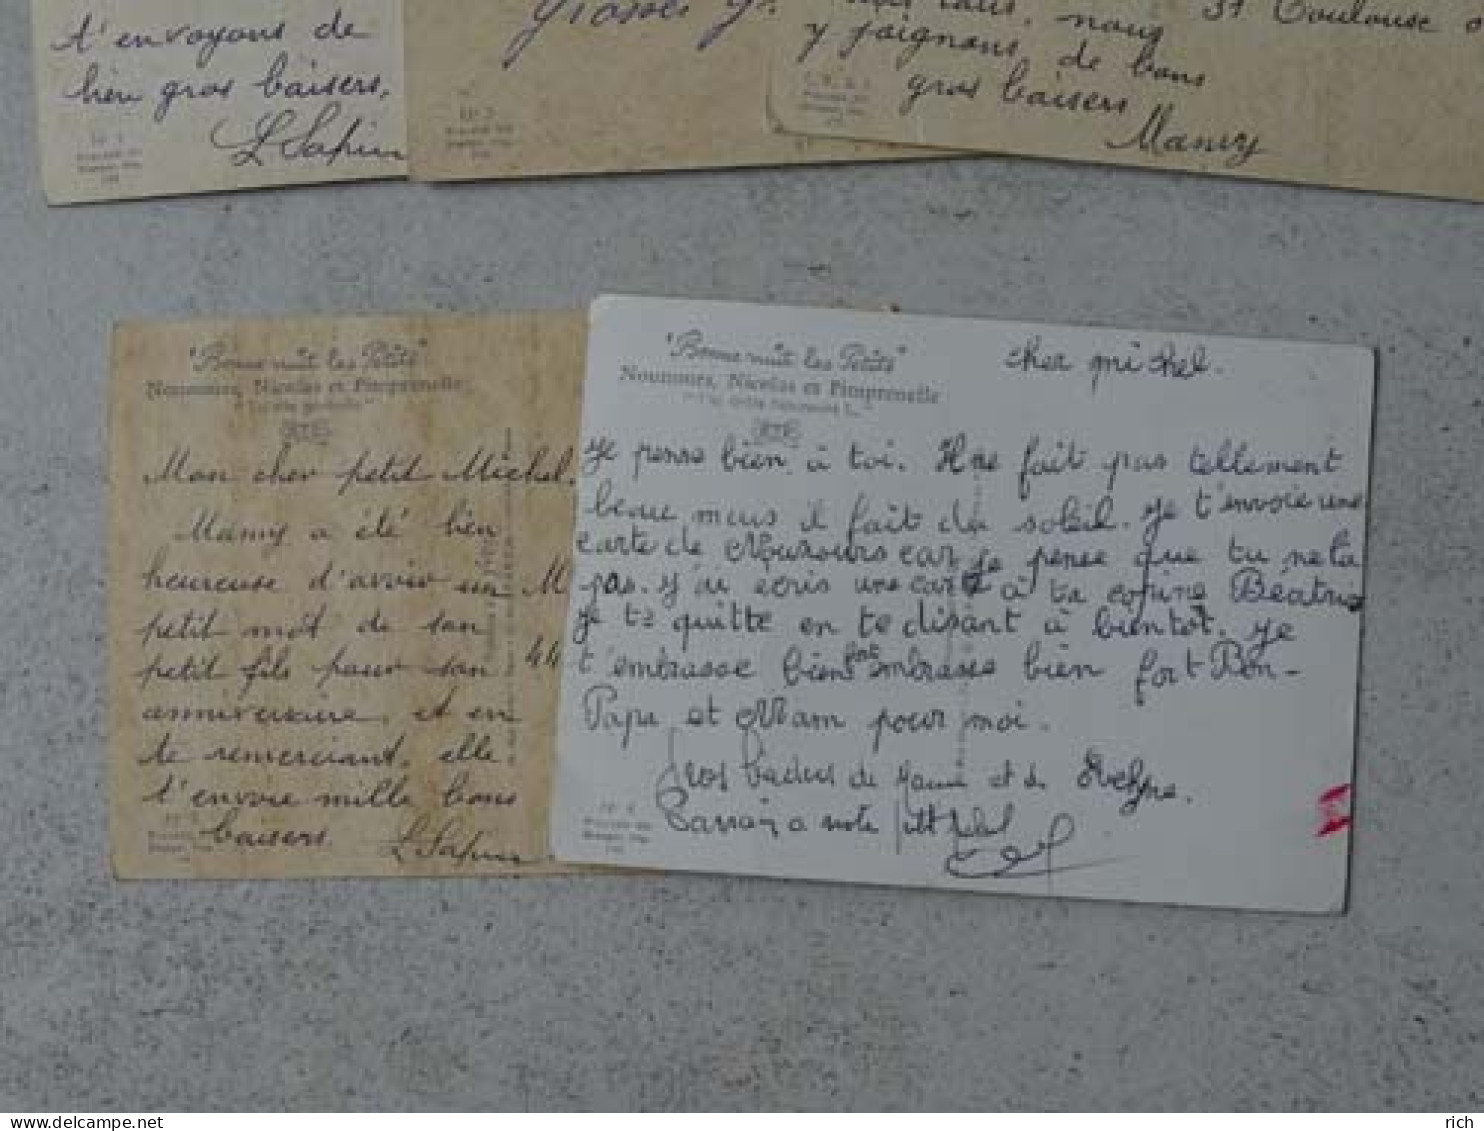 t'envoyons de
bien gros baisers.
L Sapin
grosses
nous
y joignons, de bons
gros baisers
Mamy
31 Toulouse
"Bonne nuit les Petits"
Nounours, Nicolas et Pimprenelle
Mon cher petit Michel.
Mamy a été bien
heureuse d'avoir un
petit mot de son
petit fils pour son
anniversaire, et en
te remerciant, elle
t'envoie mille bons
baisers.
L Sapin
M
44
"Bonne nuit les Petits"
Nounours, Nicolas et Pimprenelle
cher michel.
Je pense bien à toi. Il ne fait pas tellement
beau mais il fait du soleil. Je t'envoie une
carte de Nounours car je pense que tu ne la
pas. J'ai écris une carte à ta copine Béatris
Je te quitte en te disant à bientôt. Je
t'embrasse bien fort embrasse bien fort Bon-
Papa et Mam pour moi.
Gros baisers de et de Evelyne.
a notre petit
rich